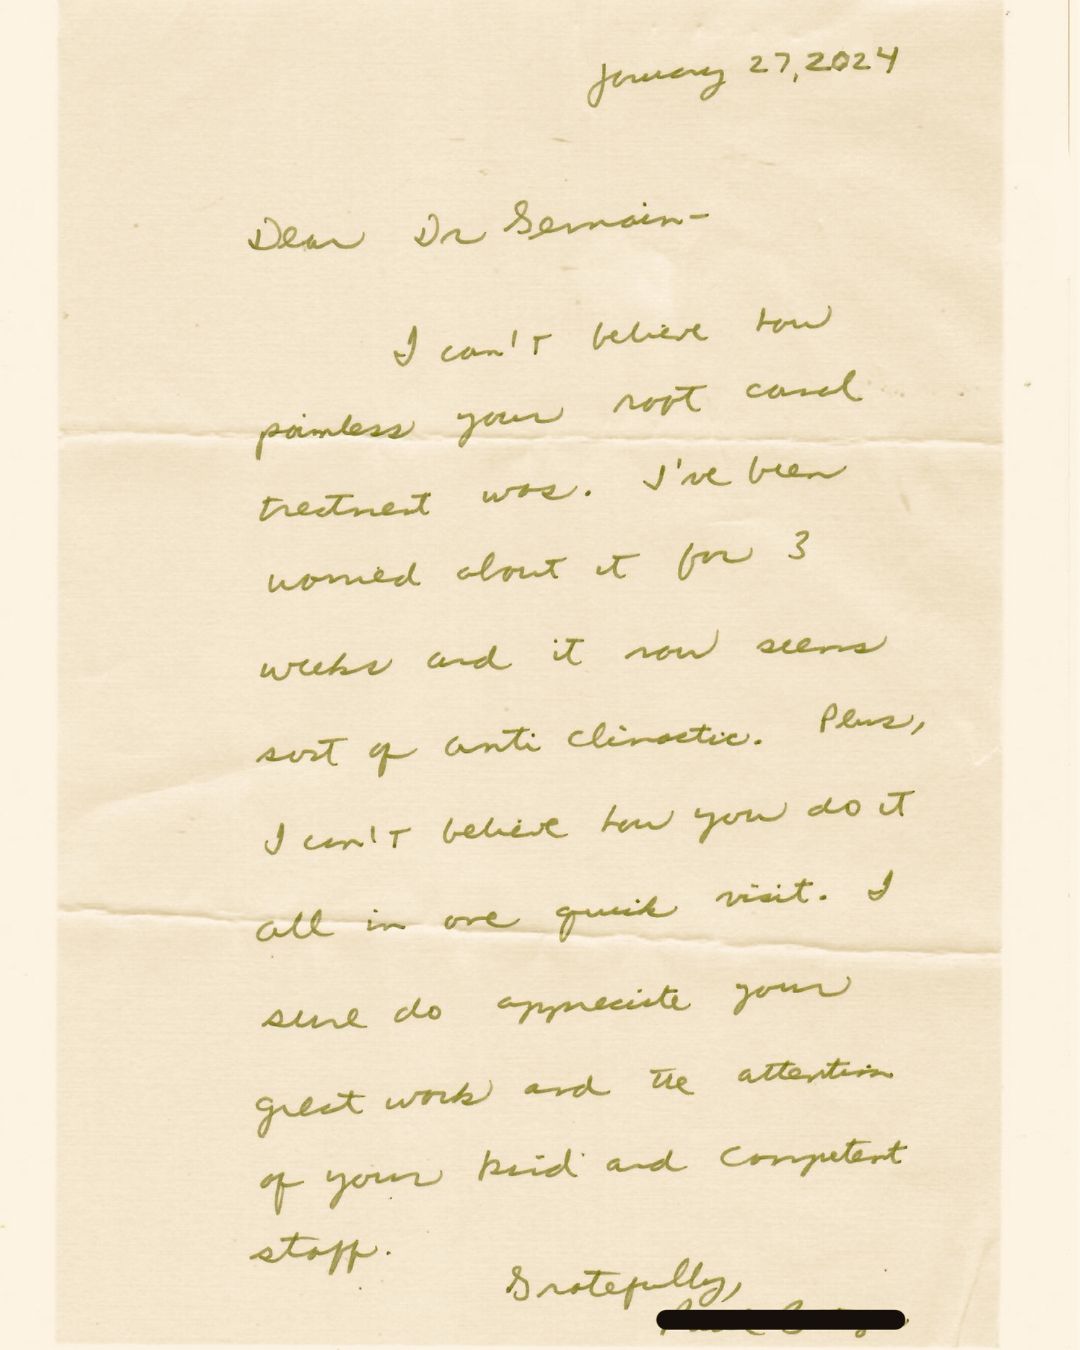 January 27, 2024
Dear Dr Germain-
I can't believe how
painless your root canal
treatment was. I've been
worried about it for 3
weeks and it now seems
sort of anti climactic. Plus,
I can't believe how you do it
all in one quick visit. I
sure do appreciate your
great work and the attention
of your kind and competent
staff.
Gratefully,